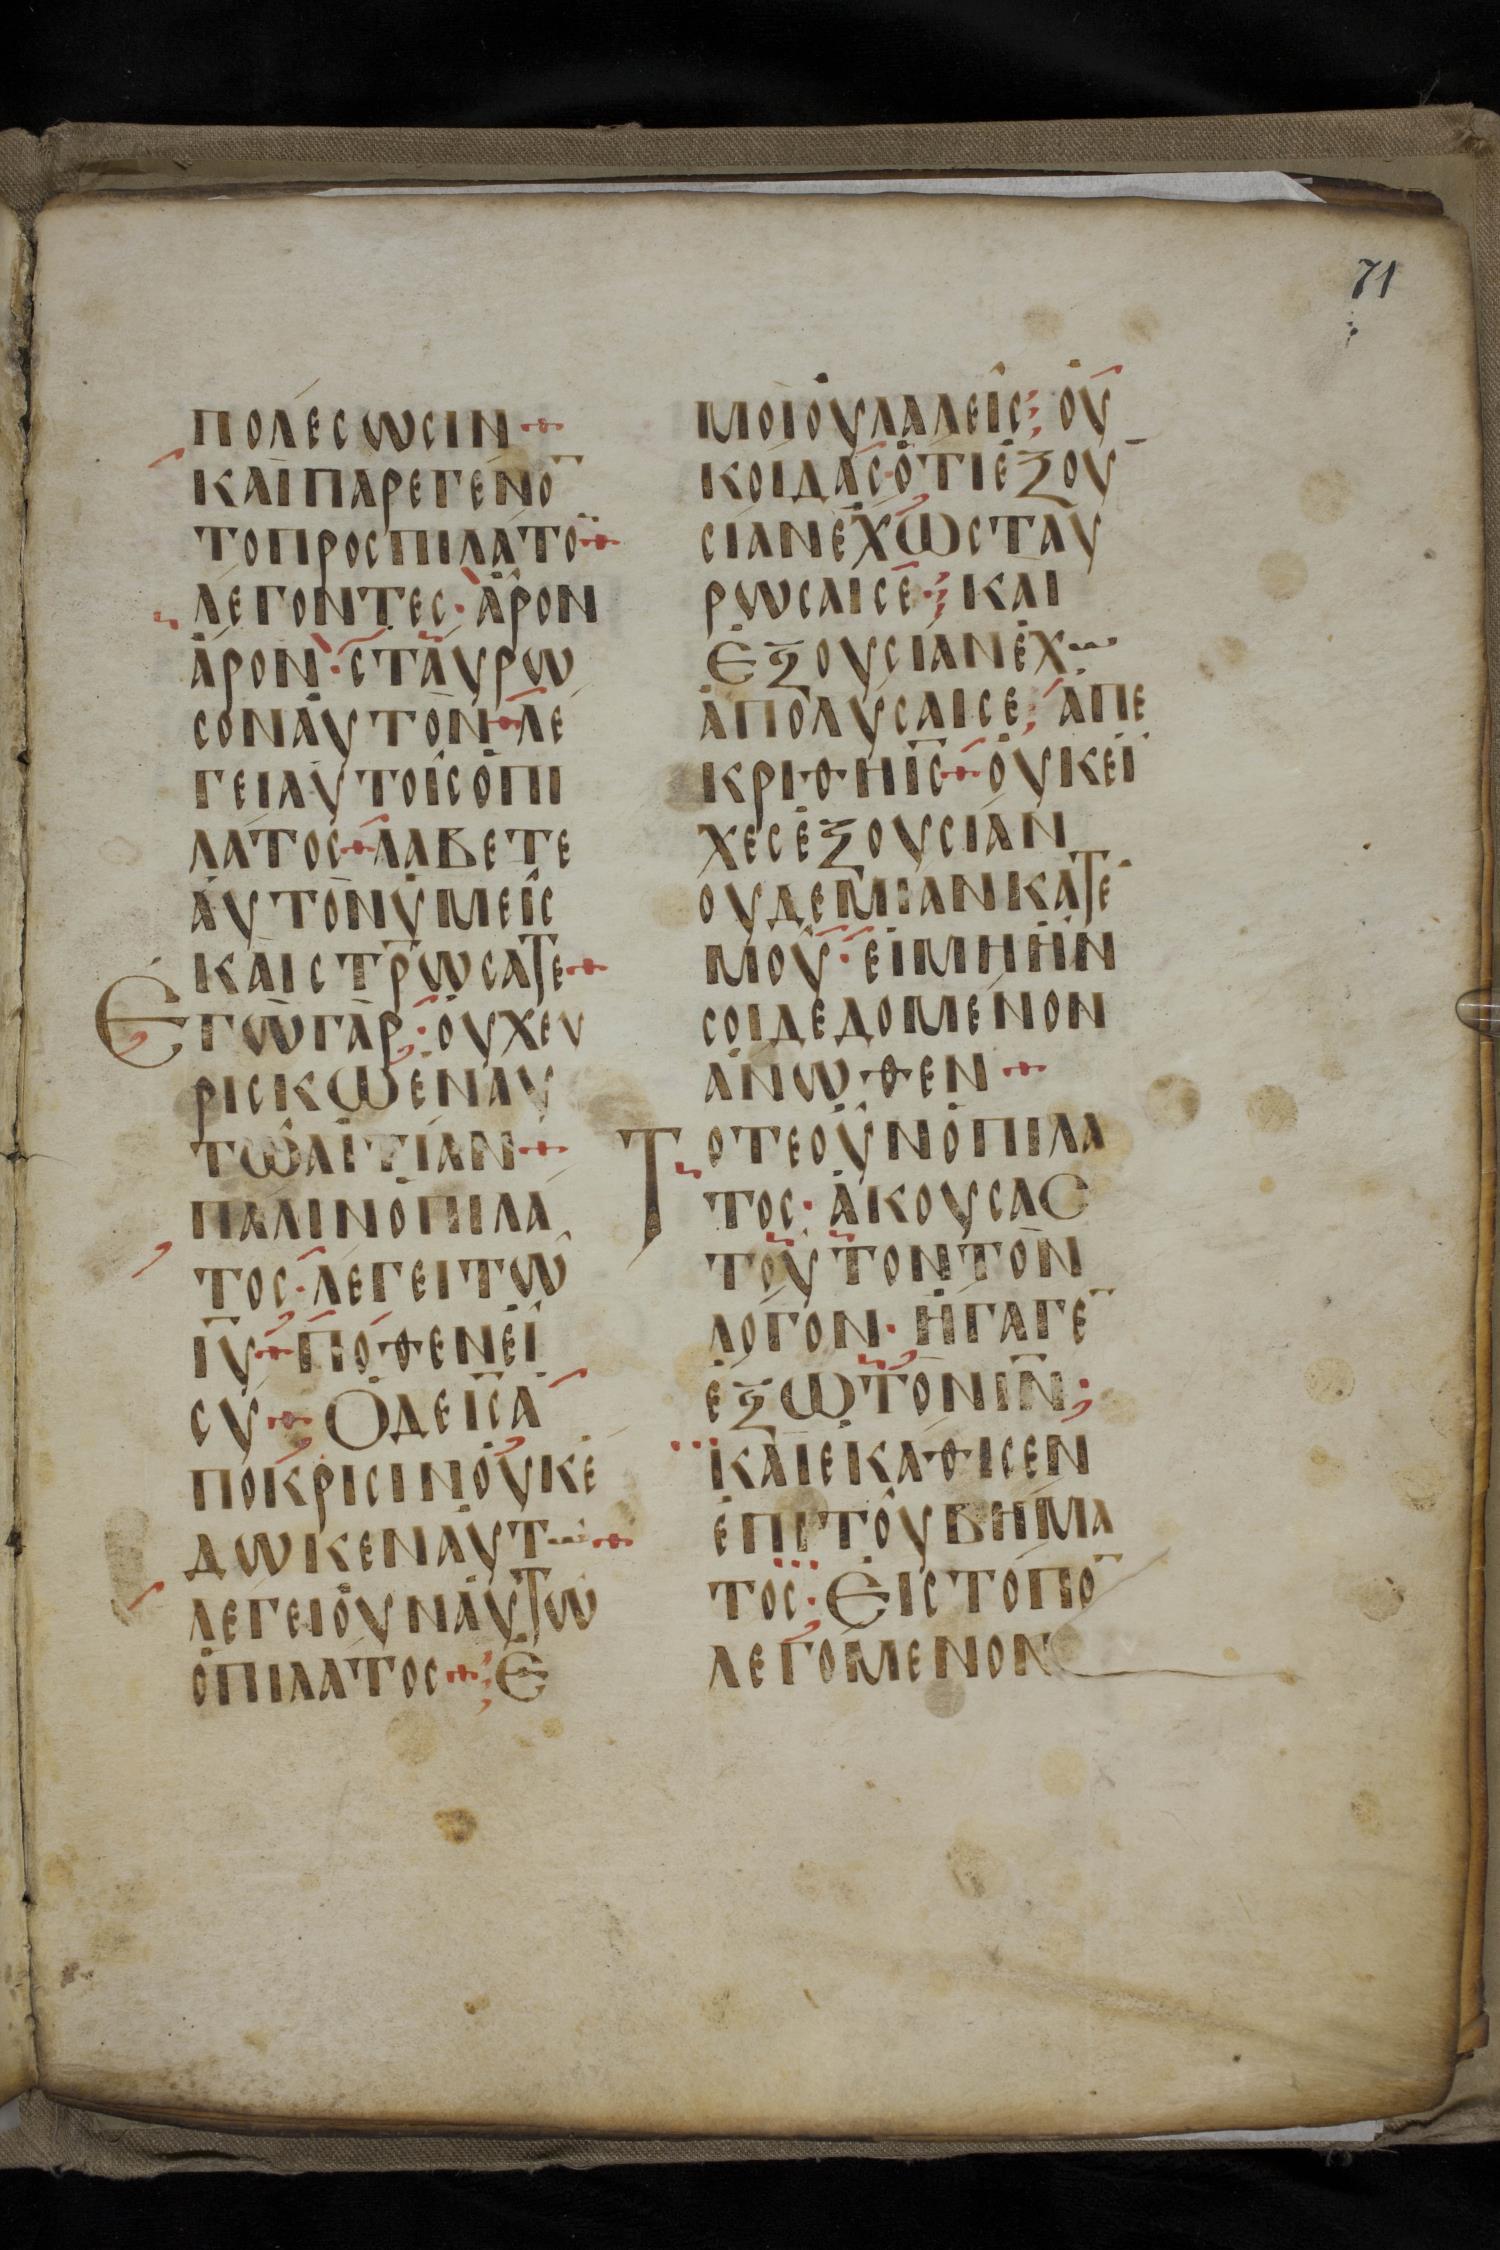 71
ΠΟΛΕСѠСΙΝ
ΚΑΙΠΑΡΕΓΕΝΟ̅
ΤΟΠΡΟСΠΙΛΑΤΟ̅
ΛΕΓΟΝΤΕС·ΑΡΟΝ
ΑΡΟΝ·СΤΑΥΡѠ
СΟΝΑΥΤΟΝ·ΛΕ
ΓΕΙΑΥΤΟΙСΟΠΙ
ΛΑΤΟС·ΛΑΒΕΤΕ
ΑΥΤΟΝΥΜΕΙС
ΚΑΙСΤΡ̅ѠСΑΤΕ
ΕΓѠΓΑΡ·ΟΥΧΕΥ
ΡΙСΚѠΕΝΑΥ
ΤѠΑΙΤΙΑΝ
ΠΑΛΙΝΟΠΙΛΑ
ΤΟС·ΛΕΓΕΙΤѠ
Ι̅Υ̅·ΠΟΘΕΝΕΙ
СΥ·ΟΔΕΙ̅С̅Α
ΠΟΚΡΙСΙΝΟΥΚΕ
ΔѠΚΕΝΑΥΤѠ
ΛΕΓΕΙΟΥΝΑΥΤѠ
ΟΠΙΛΑΤΟС·Ε
ΜΟΙΟΥΛΑΛΕΙС;ΟΥ
ΚΟΙΔΑС·ΟΤΙΕΞΟΥ
СΙΑΝΕΧѠСΤΑΥ
ΡѠСΑΙСΕ·ΚΑΙ
ΕΞΟΥСΙΑΝΕΧѠ
ΑΠΟΛΥСΑΙСΕ;ΑΠΕ
ΚΡΙΘΗΙ̅С̅·ΟΥΚΕΙ
ΧΕСΕΞΟΥСΙΑΝ
ΟΥΔΕΜΙΑΝΚΑΤΕ
ΜΟΥ·ΕΙΜΗΗΝ
СΟΙΔΕΔΟΜΕΝΟΝ
ΑΝѠΘΕΝ
ΤΟΤΕΟΥΝΟΠΙΛΑ
ΤΟС·ΑΚΟΥСΑС
ΤΟΥΤΟΝΤΟΝ
ΛΟΓΟΝ·ΗΓΑΓΕ̅
ΕΞѠΤΟΝΙ̅Ν̅
ΚΑΙΕΚΑΘΙСΕΝ
ΕΠΙΤΟΥΒΗΜΑ
ΤΟС·ΕΙСΤΟΠΟ̅
ΛΕΓΟΜΕΝΟΝ